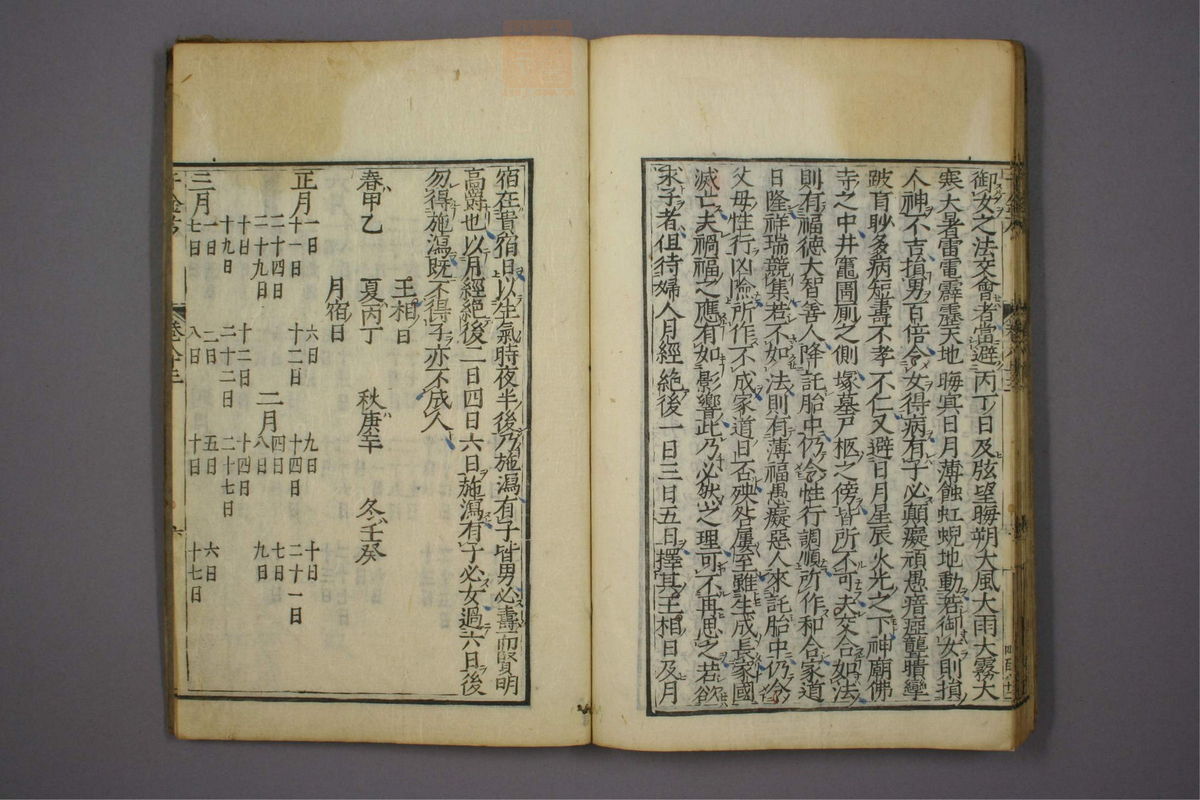 御女之法交會者當避丙丁日及弦望晦朔大風大雨大霧大
寒大暑雷電霹靂天地晦冥日月薄蝕虹蜺地動若御女則損
人神不吉損男百倍令女得病有子必顛癡頑愚瘖瘂聾聵攣
跛盲眇多病短壽不孝不仁又避日月星辰火光之下神廟佛
寺之中井竈圊廁之側塚墓尸柩之傍皆所不可夫交合如法
則有福德大智善人降託胎中仍令性行調順所作和合家道
日隆祥瑞競集若不如法則有薄福愚癡惡人來託胎中仍令
父母性行凶險所作不成家道日否殃咎屢至雖生成長家國
滅亡夫禍福之應有如影響此乃必然之理可不再思之若欲
求子者但待婦人月經絶後一日三日五日擇其王相日及月
宿在貴宿日以生氣時夜半後乃施瀉有子皆男必壽而賢明
高爵也以月經絶後二日四日六日施瀉有子必女過六日後
勿得施瀉既不得子亦不成人
王相日
春甲乙 夏丙丁 秋庚辛 冬壬癸
月宿日
正月 一日 六日 九日 十日
十一日 十二日 十四日 二十一日
二十四日 二十九日
二月 四日 七日 八日 九日
十日 十二日 十四日
十九日 二十二日 二十七日
三月 一日 二日 五日 六日
七日 八日 十日 十七日
卷八十三